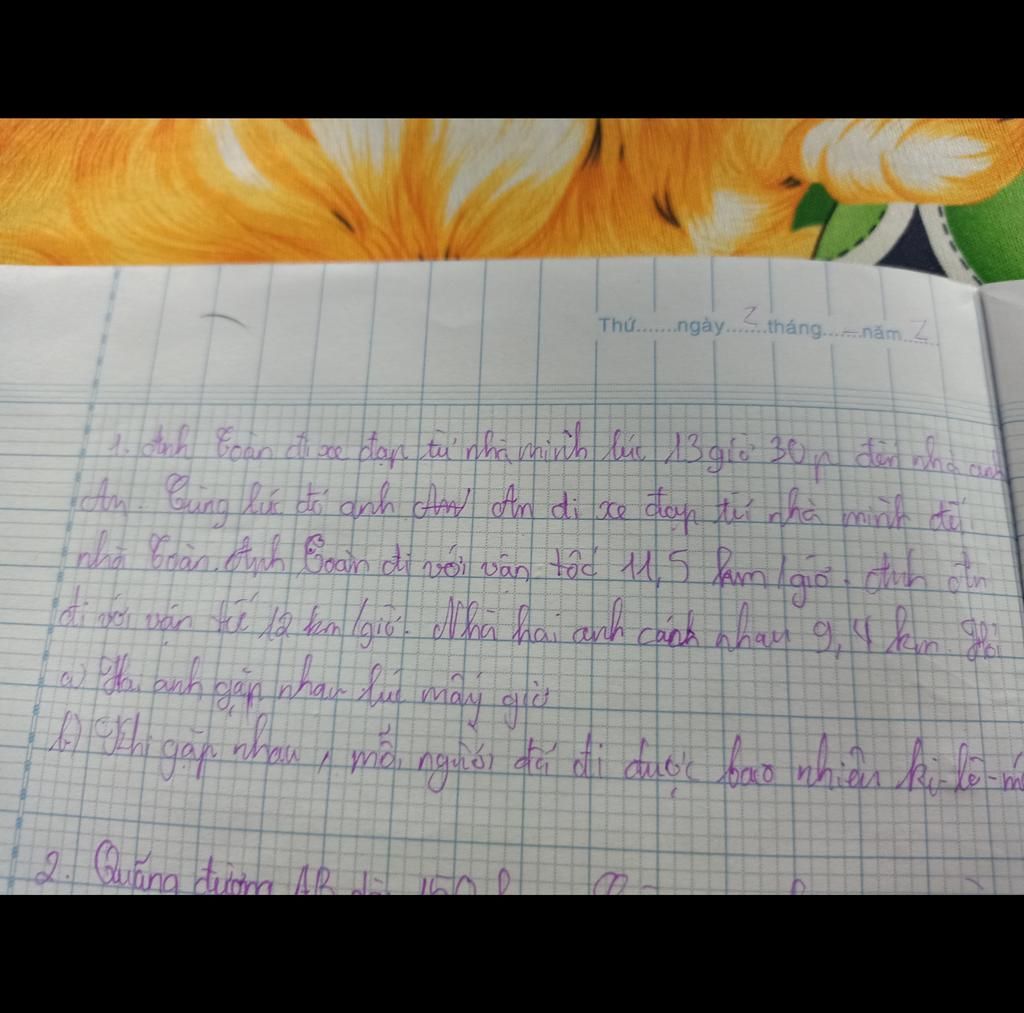 Thứ.......ngày.......tháng.......năm.......
1. Anh Toàn đi xe đạp từ nhà mình lúc 13 giờ 30p đến nhà anh
An. Cùng lúc đó anh An đi xe đạp từ nhà mình đế
nhà Toàn. Anh Toàn đi với vân tốc 11,5 km/giờ. Anh An
đi với vận tốc 12 km/giờ. Nhà hai anh cách nhau 9,4 km. Hỏi
a) Hai anh gặp nhau lúc mấy giờ
b) Khi gặp nhau, mỗi người đã đi được bao nhiêu ki-lô-m
2. Quãng đường AB dài 150